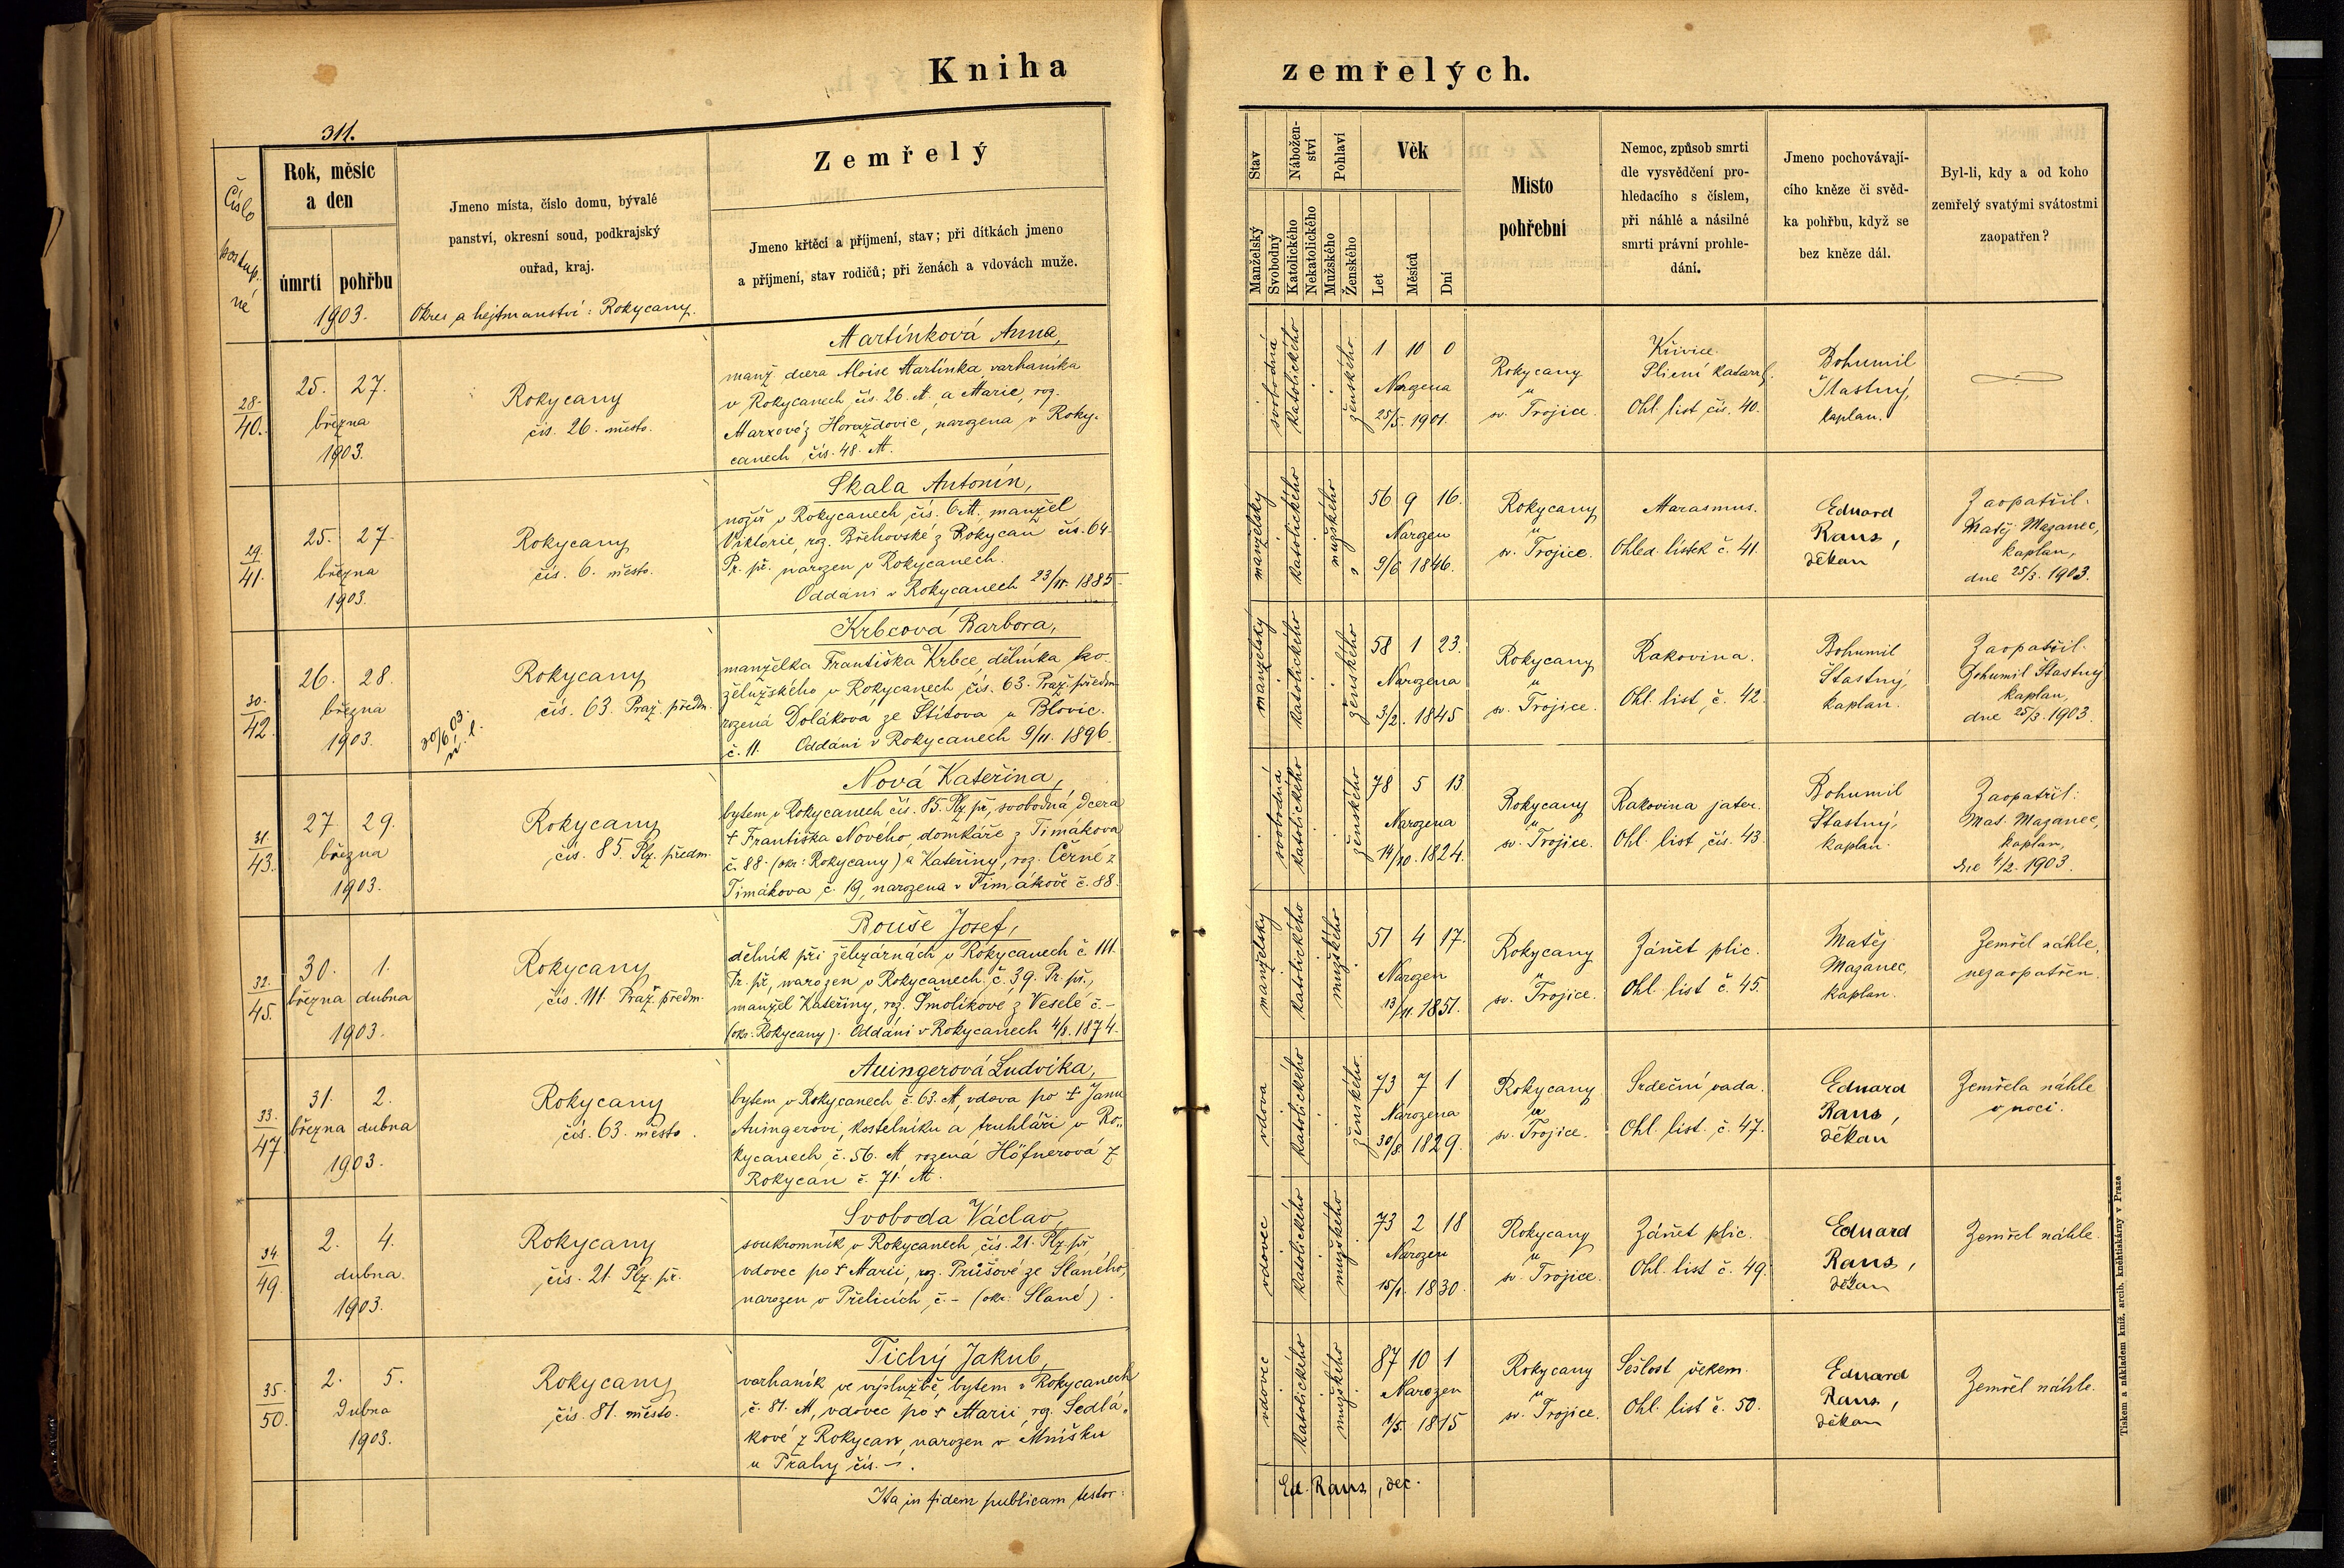 Kniha
zemřelých.
311.
Číslo
postup-
né
Rok, měsíc
a den
úmrtí pohřbu
1903.
Jmeno místa, číslo domu, bývalé
panství, okresní soud, podkrajský
ouřad, kraj.
Okres a hejtmanství: Rokycany.
Zemřelý
Jmeno křtěcí a příjmení, stav; při dítkách jmeno
a příjmení, stav rodičů; při ženách a vdovách muže.
Stav
Manželský
Svobodný
Nábožen-
ství
Katolického
Nekatolického
Pohlaví
Mužského
Ženského
Věk
Let
Měsíců
Dní
Místo
pohřební
Nemoc, způsob smrti
dle vysvědčení pro-
hledacího s číslem,
při náhlé a násilné
smrti právní prohle-
dání.
Jmeno pochovávají-
cího kněze či svěd-
ka pohřbu, když se
bez kněze dál.
Byl-li, kdy a od koho
zemřelý svatými svátostmi
zaopatřen?
28.
40.
25. 27.
března
1903.
Rokycany
čís. 26. město.
Martínková Anna,
manž. dcera Aloise Martínka, varhaníka
v Rokycanech čís. 26. M. a Marie, roz.
Marxové z Horažďovic, narozena v Roky-
canech čís. 48. M.
svobodná
katolického
ženského
1 10 0
Narozena
25/5. 1901.
Rokycany
u
sv. Trojice.
Křivice.
Plicní katarrh.
Ohl. list čís. 40.
Bohumil
Šťastný,
kaplan.
29.
41.
25. 27.
března
1903.
Rokycany
čís. 6. město.
Skala Antonín,
nožíř v Rokycanech čís. 6 M. manžel
Viktorie, roz. Břehovské z Rokycan čís. 64.
Pr. př. narozen v Rokycanech.
Oddáni v Rokycanech 23/11. 1885
manželský
katolického
mužského
56 9 16.
Narozen
9/6 1846.
Rokycany
u
sv. Trojice.
Marasmus.
Ohled. lístek č. 41.
Eduard
Raus,
děkan
Zaopatřil.
Matěj Mazanec,
kaplan,
dne 25/3. 1903.
30.
42.
26. 28.
března
1903.
Rokycany
čís. 63. Praž. předm.
30/6 03.
ú. l.
Krbcová Barbora,
manželka Františka Krbce, dělníka ko-
želužského v Rokycanech čís. 63. Praž. předm.
rozená Doláková ze Štítova u Blovic.
č. 11. Oddáni v Rokycanech 9/11. 1896.
manželský
katolického
ženského
58 1 23.
Narozena
3/2. 1845
Rokycany
u
sv. Trojice.
Rakovina.
Ohl. list č. 42.
Bohumil
Šťastný,
kaplan.
Zaopatřil.
Bohumil Šťastný
kaplan,
dne 25/3. 1903.
31.
43.
27. 29.
března
1903.
Rokycany
čís. 85. Plz. předm.
Nová Kateřina,
bytem v Rokycanech čís. 85. Plz. př., svobodná, dcera
† Františka Nového, domkáře z Timákova
č. 88. (okr: Rokycany) a Kateřiny, roz. Černé z
Timákova č. 19, narozena v Timákově č. 88.
svobodná
katolického
ženského
78 5 13
Narozena
14/10. 1824.
Rokycany
u
sv. Trojice.
Rakovina jater.
Ohl. list čís. 43.
Bohumil
Šťastný,
kaplan.
Zaopatřil:
Mat. Mazanec,
kaplan,
dne 4/2. 1903.
32.
45.
30. 1.
března dubna
1903.
Rokycany
čís. 111. Praž. předm.
Bouše Josef,
dělník při železárnách v Rokycanech č. 111.
Pr. př., narozen v Rokycanech č. 39. Pr. př.,
manžel Kateřiny, roz. Smolíkové z Veselé č. –
(okr: Rokycany). Oddáni v Rokycanech 4/8. 1874.
manželský
katolického
mužského
51 4 17.
Narozen
13/11. 1851.
Rokycany
u
sv. Trojice.
Zánět plic.
Ohl. list č. 45.
Matěj
Mazanec,
kaplan.
Zemřel náhle,
nezaopatřen.
33.
47.
31. 2.
března dubna
1903.
Rokycany
čís. 63. město.
Auingerová Ludvíka,
bytem v Rokycanech č. 63. M, vdova po † Janu
Auingerovi, kostelníku a truhláři v Ro-
kycanech č. 56. M rozená Höfnerová z
Rokycan č. 71. M.
vdova
katolického
ženského.
73 7 1
Narozena
30/8. 1829.
Rokycany
u
sv. Trojice.
Srdeční vada.
Ohl. list. č. 47.
Eduard
Raus,
děkan
Zemřela náhle
v noci.
34.
49.
2. 4.
dubna.
1903.
Rokycany
čís. 21. Plz. př.
Svoboda Václav,
soukromník v Rokycanech čís. 21. Plz. př.
vdovec po † Marii, roz. Průšové ze Slaného,
narozen v Přelicích, č. – (okr. Slané).
vdovec
katolického
mužského
73 2 18
Narozen
15/1. 1830.
Rokycany
u
sv. Trojice.
Zánět plic.
Ohl. list č. 49.
Eduard
Raus,
děkan
Zemřel náhle.
35.
50.
2. 5.
Dubna
1903.
Rokycany
čís. 81. město.
Tichý Jakub,
varhaník ve výslužbě, bytem v Rokycanech
č. 81. M, vdovec po † Marii, roz. Sedlá-
kové z Rokycan, narozen v Mníšku
u Prahy čís. –.
vdovec
katolického
mužského
87 10 1
Narozen
1/5. 1815
Rokycany
u
sv. Trojice.
Sešlost věkem.
Ohl. list č. 50.
Eduard
Raus,
děkan
Zemřel náhle.
Ita in fidem publicam testor:
Ed. Raus, dec.
Tiskem a nákladem kníž. arcib. knihtiskárny v Praze